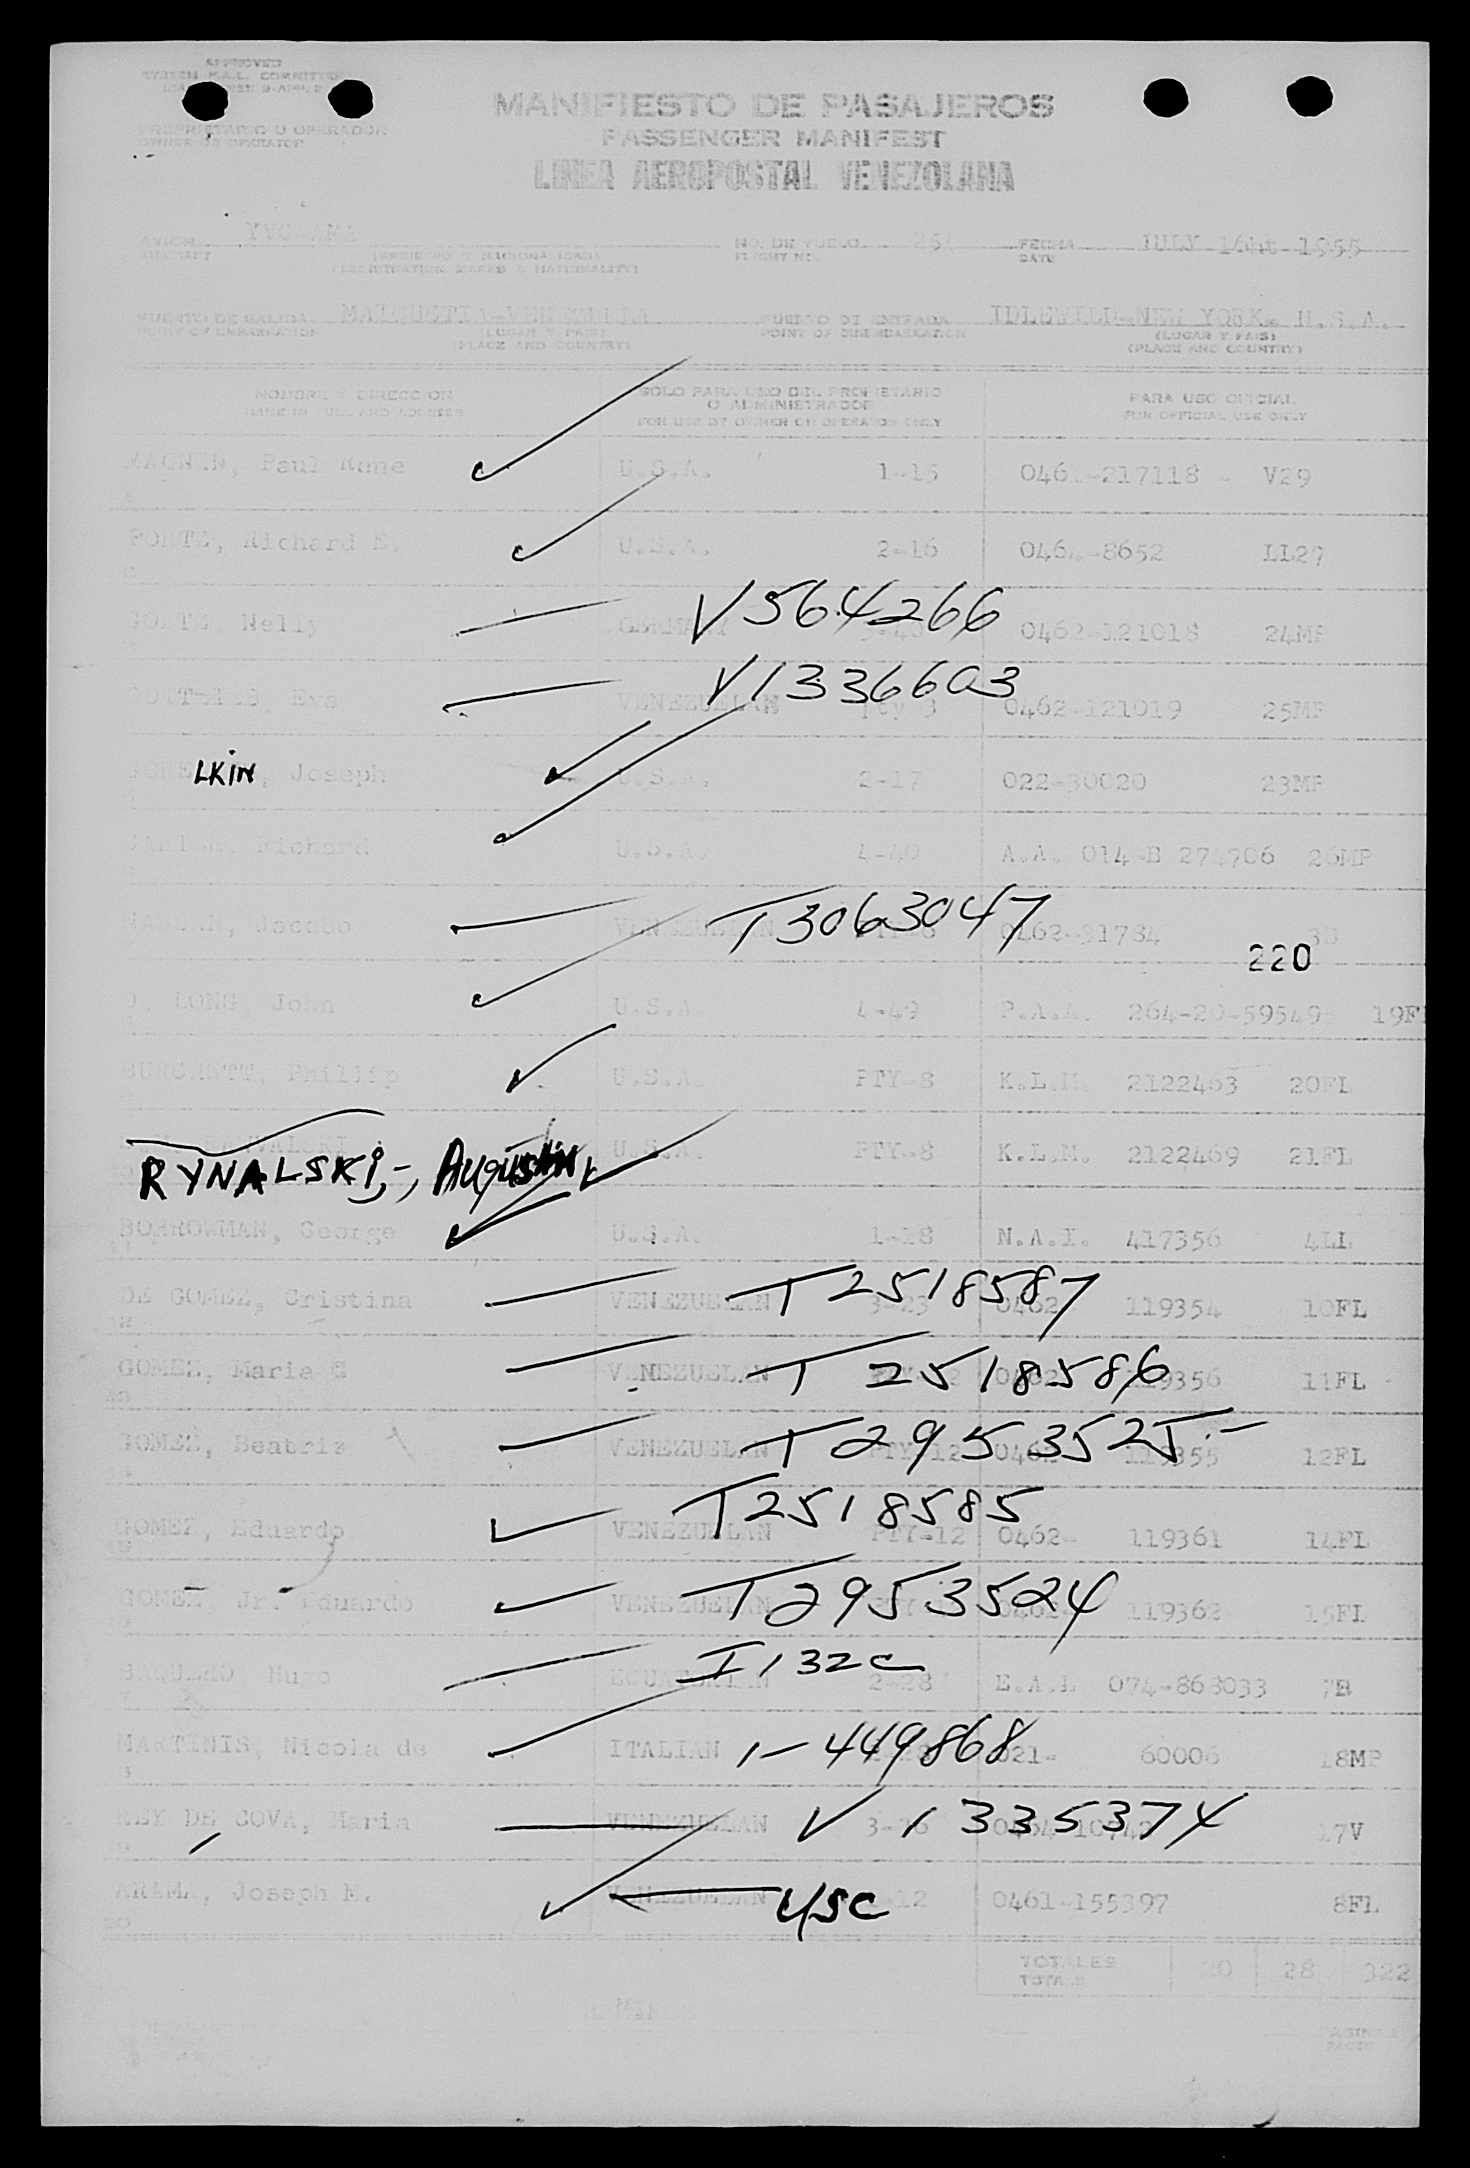 APPROVED
PROPRIETARIO U OPERADOR
OWNER OR OPERATOR
MANIFIESTO DE PASAJEROS
PASSENGER MANIFEST
LINEA AEROPOSTAL VENEZOLANA
AVION
AIRCRAFT
(REGISTRATION MARKS & NATIONALITY)
NO. DE VUELO
FLIGHT NO.
FECHA JULY 16ht-1955
DATE
PUERTO DE SALIDA MAIQUETIA-VENEZUELA
POINT OF EMBARKATION
(LUGAR Y PAIS)
(PLACE AND COUNTRY)
PUERTO DE ENTRADA IDLEWILD-NEW YORK- U.S.A.
POINT OF DISEMBARKATION
(LUGAR Y PAIS)
(PLACE AND COUNTRY)
NOMBRE Y DIRECCION
NAME IN FULL AND ADDRESS
SOLO PARA USO DEL PROPIETARIO
O ADMINISTRADOR
FOR USE OF OWNER OR OPERATOR ONLY
PARA USO OFICIAL
FOR OFFICIAL USE ONLY
Paul Rene U.S.A. 1-15 217118 - V29
Richard E. U.S.A. 2-16 8652 LL29
Nelly GERMANY V564266 0462-121018 24MP
Eva VENEZUELAN V1336603 0462-121019 25MP
LKIN, Joseph U.S.A. 2-17 022-30020 23MP
Richard U.S.A. 4-40 A.A. 014-E 274906 26MP
Jacobo VENEZUELAN T3063047 0462-31784
220
LONG, John U.S.A. 4-49 P.A.A. 264-20-59549 19F
BURCHETT, Phillip U.S.A. PTY-8 K.L.M. 2122463 20FL
RYNALSKI,-, Augustin U.S.A. PTY-8 K.L.M. 2122469 21FL
BORROWMAN, George U.S.A. 1-18 N.A.I. 417356 4LL
DE GOMEZ, Cristina VENEZUELAN T2518587 3-23 0462 119354 10FL
GOMEZ, Maria VENEZUELAN T 2518586 119356 11FL
GOMEZ, Beatriz VENEZUELAN T2953525.- PTY-12 0462 119355 12FL
GOMEZ, Eduardo VENEZUELAN T2518585 PTY-12 0462- 119361 14FL
GOMEZ, Jr. Eduardo VENEZUELAN T2953524 119362 15FL
BAQUERO, Hugo ECUATORIAN I132C 2-28 E.A.L 074-868033 7B
MARTINIS, Nicola de ITALIAN 1-449868 021- 60006 18MP
REY DE COVA, Maria VENEZUELAN V 1335374 17V
Joseph M. VENEZUELAN USC 12 0461-155397 8FL
20
TOTALES 20 28 322
TOTALS